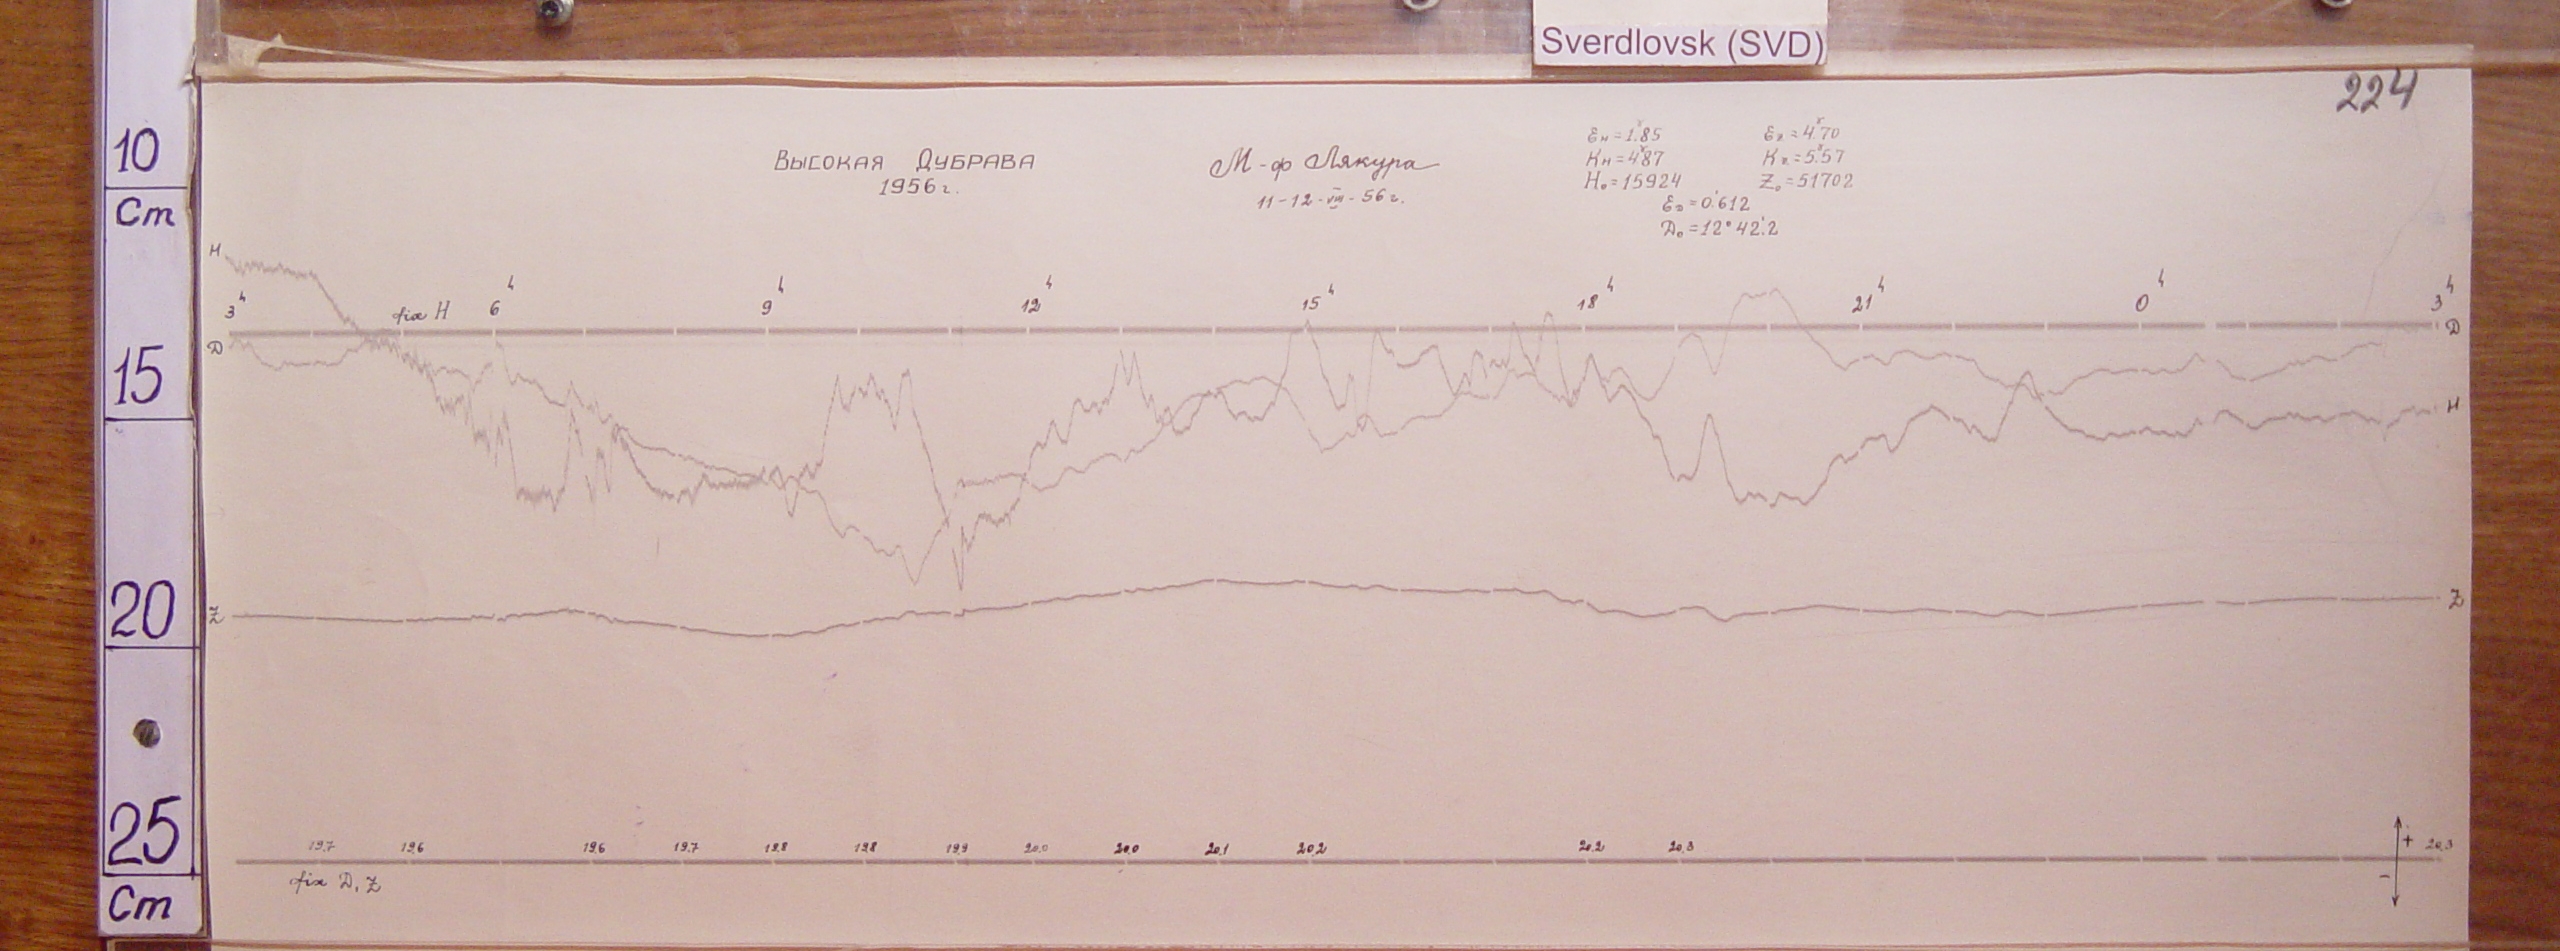 Sverdlovsk (SVD)
224
10
Cm
15
20
25
Cm
Высокая Дубрава
1956 г.
М-ф Лякура
11-12-VIII-56 г.
εH = 1.85 εz = 4.70
KH = 4.87 Kz = 5.57
H₀ = 15924 Z₀ = 51702
εD = 0.612
D₀ = 12° 42.2
H
3ч fix H 6ч 9ч 12ч 15ч 18ч 21ч 0ч 3ч
D D
H
Z Z
19.7 19.6 19.6 19.7 19.8 19.8 19.9 20.0 20.0 20.1 20.2 20.2 20.3 + 20.3
fix D, Z -